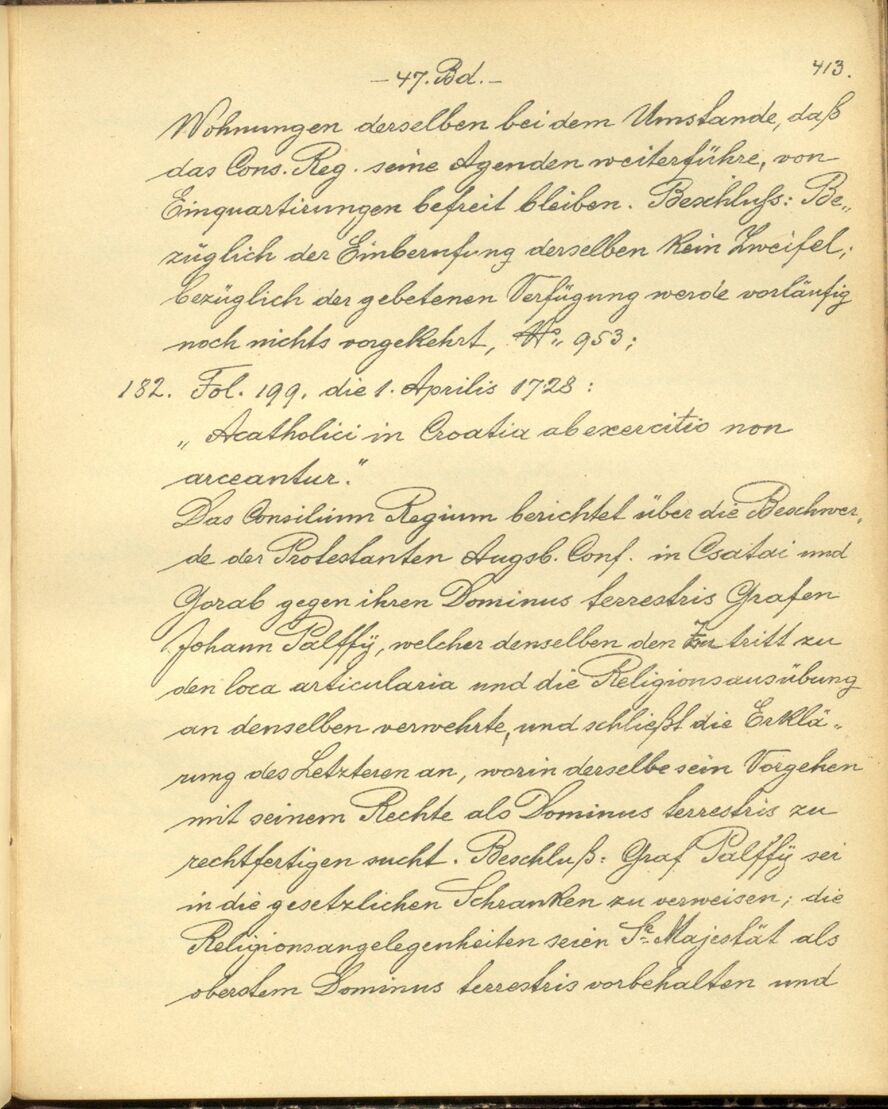 413.
– 47. Bd. –
Wohnungen derselben bei dem Umstande, daß
das Cons. Reg. seine Agenden weiterführe, von
Einquartirungen befreit bleiben. Beschluß: Be„
züglich der Einberufung derselben kein Zweifel;
bezüglich der gebetenen Verfügung werde vorläufig
noch nichts vorgekehrt, No„ 953;
182. Fol. 199. die 1. Aprilis 1728:
„Acatholici in Croatia ab exercitio non
arceantur.“
Das Consilium Regium berichtet über die Beschwer„
de der Protestanten Augsb. Conf. in Csatai und
Gorab gegen ihren Dominus terrestris Grafen
Johann Palffÿ, welcher denselben den Zutritt zu
den loca articularia und die Religionsausübung
an denselben verwehrte, und schließt die Erklä„
rung des Letzteren an, worin derselbe sein Vorgehen
mit seinem Rechte als Dominus terrestris zu
rechtfertigen sucht. Beschluß: Graf Palffÿ sei
in die gesetzlichen Schranken zu verweisen; die
Religionsangelegenheiten seien Sr. Majestät als
oberstem Dominus terrestris vorbehalten und